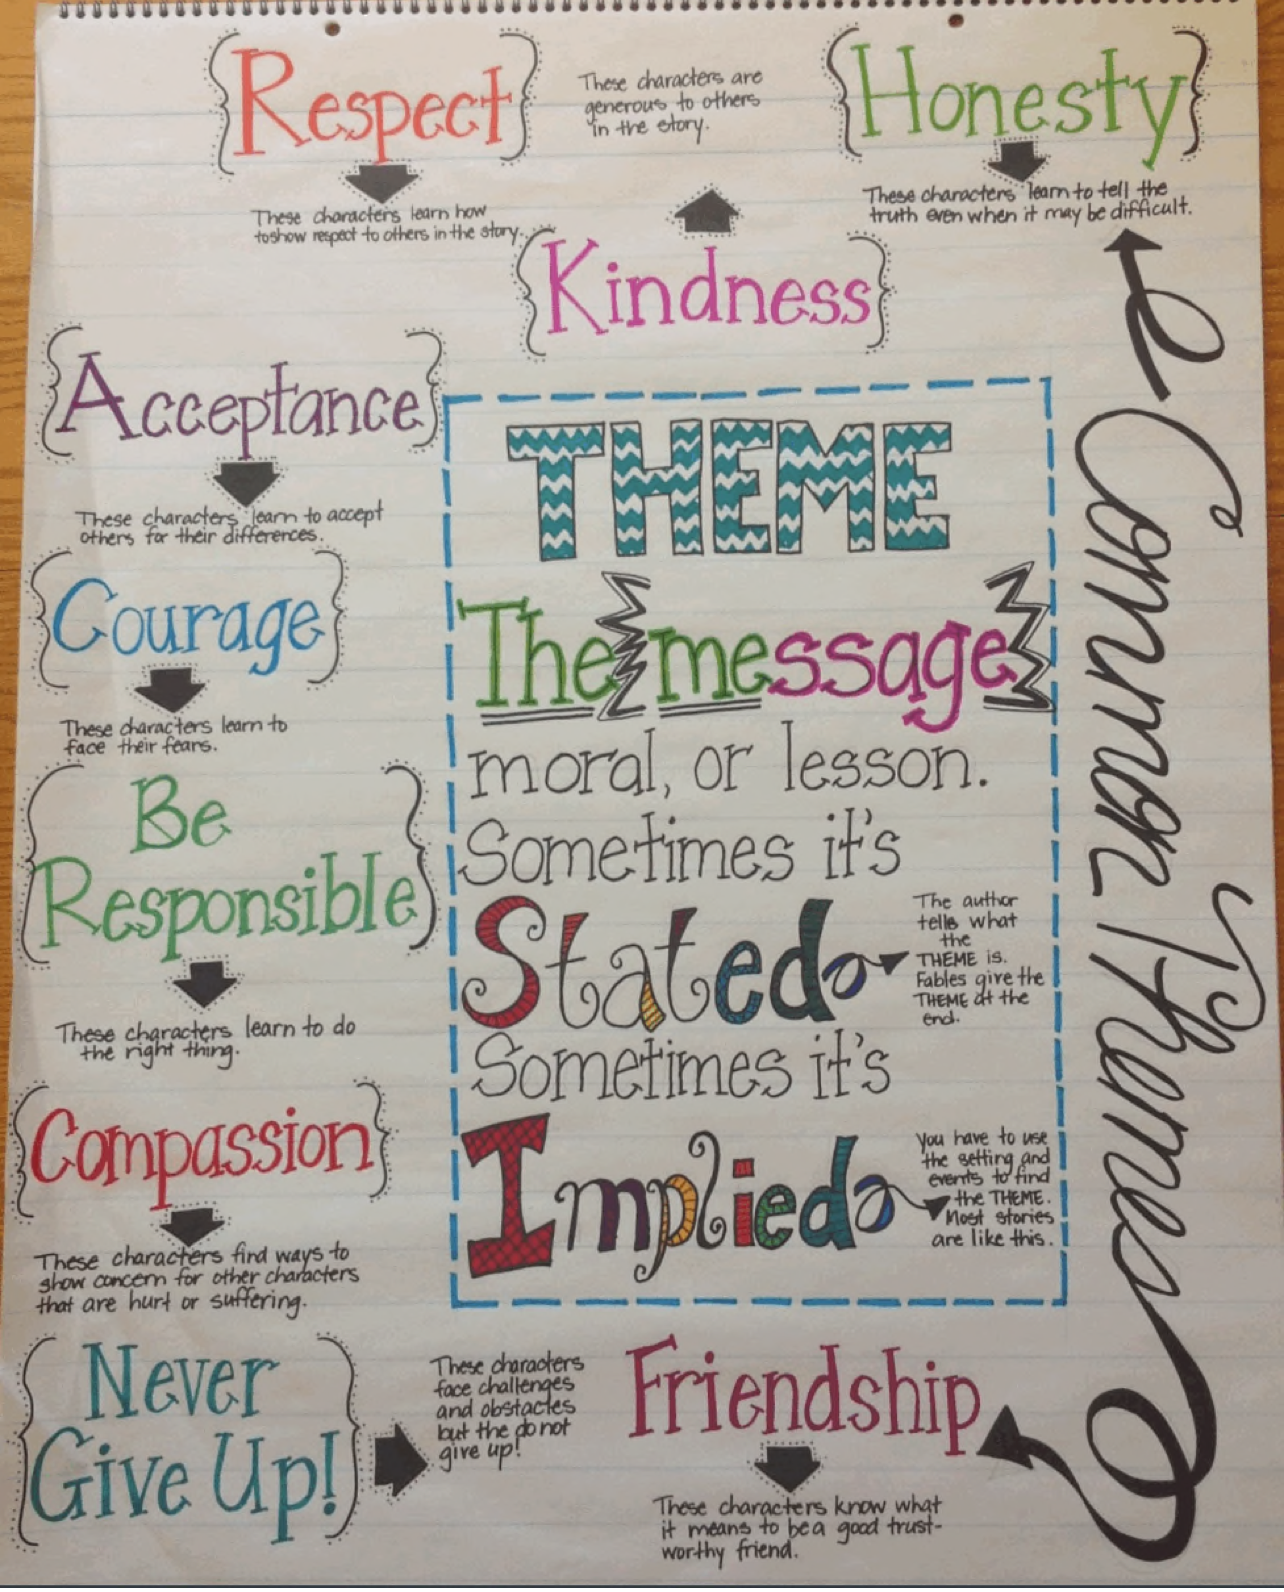 Respect
These characters learn how
to show respect to others in the story.
These characters are
generous to others
in the story.
Kindness
Honesty
These characters learn to tell the
truth even when it may be difficult.
Acceptance
These characters learn to accept
others for their differences.
Courage
These characters learn to
face their fears.
Be
Responsible
These characters learn to do
the right thing.
Compassion
These characters find ways to
show concern for other characters
that are hurt or suffering.
Never
Give Up!
These characters
face challenges
and obstacles
but the do not
give up!
THEME
The message
moral, or lesson.
Sometimes it's
Stated
The author
tells what
the
THEME is.
Fables give the
THEME at the
end.
Sometimes it's
Implied
You have to use
the setting and
events to find
the THEME.
Most stories
are like this.
Friendship
These characters know what
it means to be a good trust-
worthy friend.
Common Themes